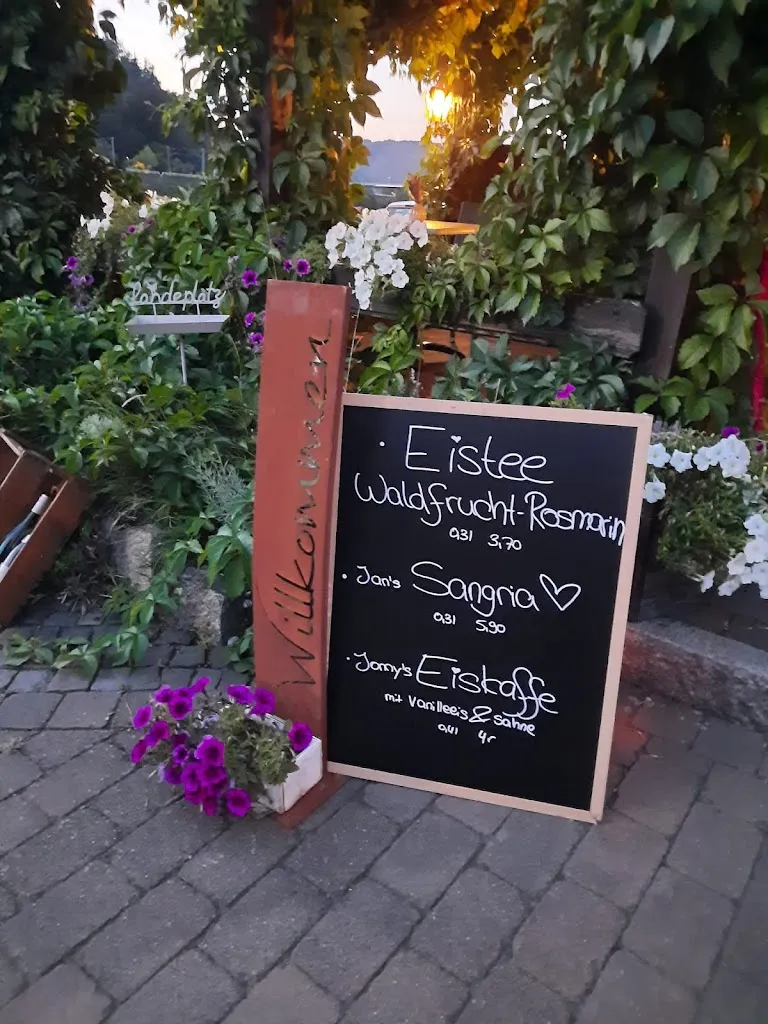 Landeplatz
Willkommen
• Eistee
Waldfrucht-Rosmarin
0,3l 3,70
• Jan's Sangria ♡
0,3l 5,90
• Jonny's Eiskaffe
mit Vanilleeis & Sahne
0,4l 4,-